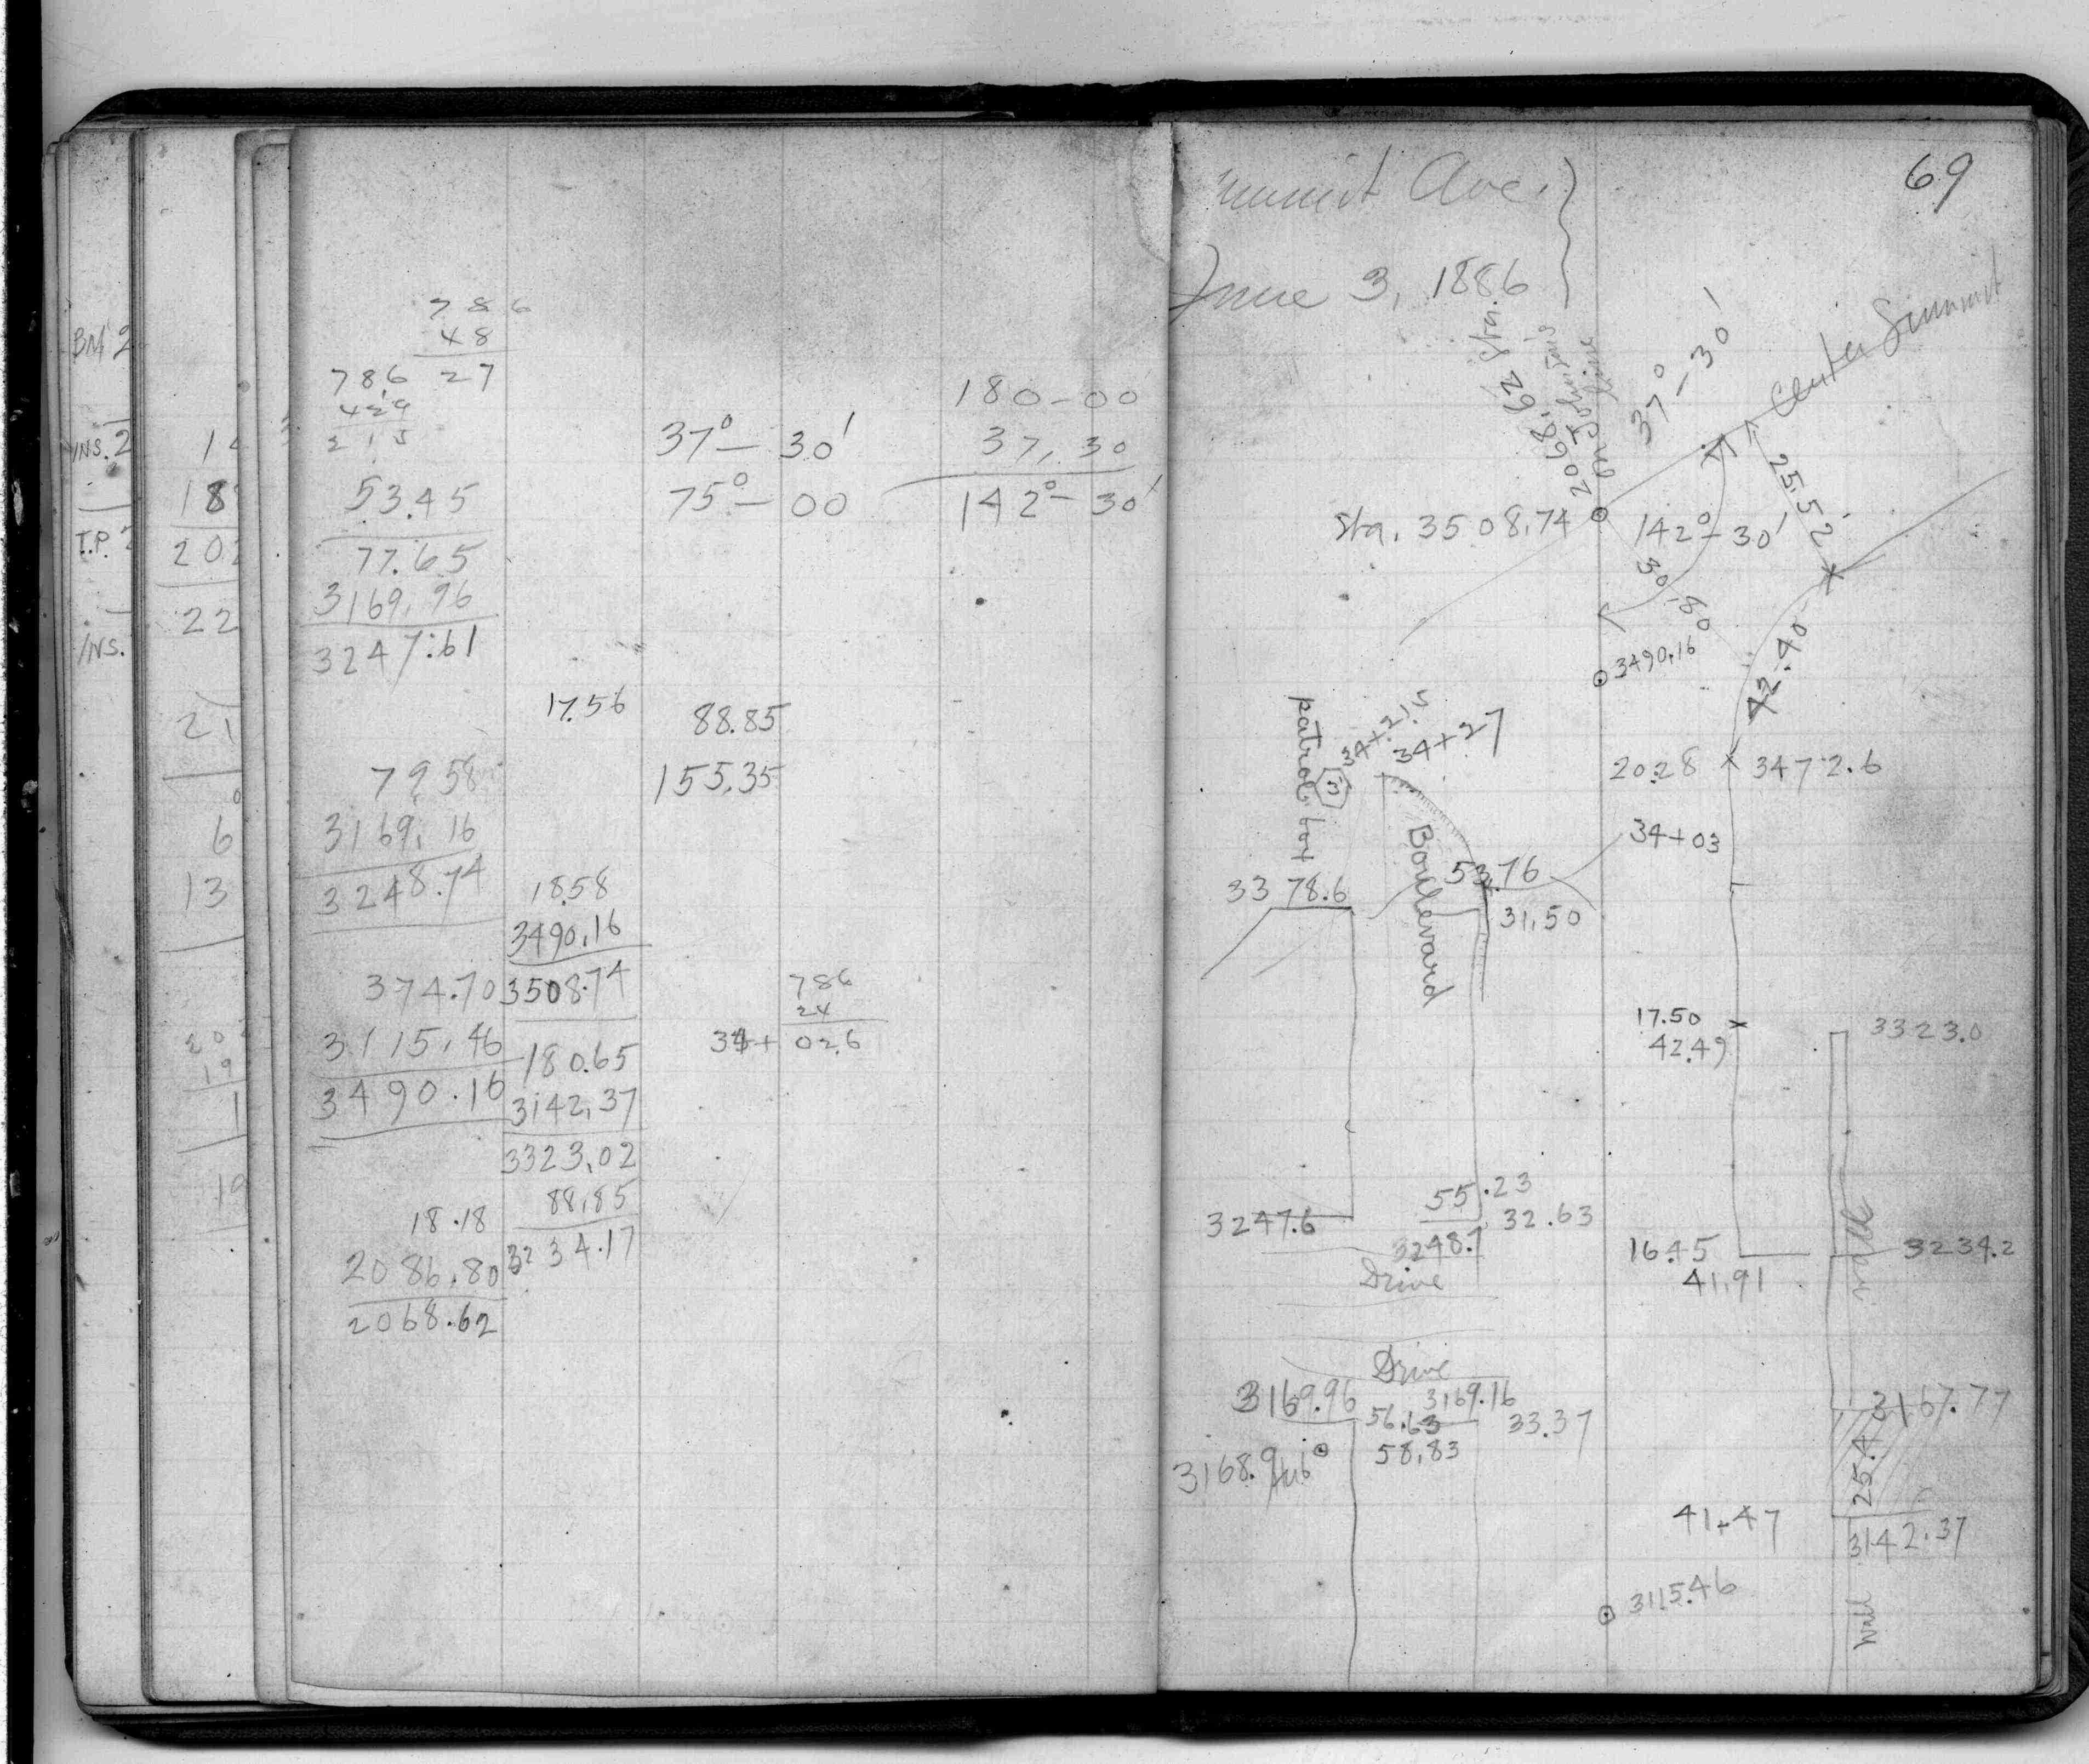 BM 2
INS. 2
T.P. 2
INS.
14
18
202
22
21
6
13
20
19
1
19
786
48
27
78.6
21.5
53.45
77.65
3169.96
3247.61
79.58
3169.16
3248.74
374.70
3115.46
3490.16
18.18
2086.80
2068.62
17.56
18.58
3490.16
3508.74
180.65
3142.37
3323.02
88.85
3234.17
37° – 30'
75° – 00
88.85
155.35
786
24
34+ 02.6
180–00
37, 30
142° – 30'
69
ummit Ave.
June 3, 1886
2068.62 Sta.
on Johnson's
line
37° – 30'
Center Summit
25.52
Sta. 3508.74
142° – 30'
30.80
3490.16
42.40
patrol box
34+21.5
34+27
20.28
3472.6
Boulevard
34+03
53.76
3378.6
31.50
17.50
42.49
3323.0
55.23
32.63
3247.6
3248.7
Drive
16.45
41.91
walk
3234.2
Drive
3169.96
3169.16
56.63
33.37
58.83
3168.9
3167.77
25.4
41.47
3142.37
3115.46
Wall